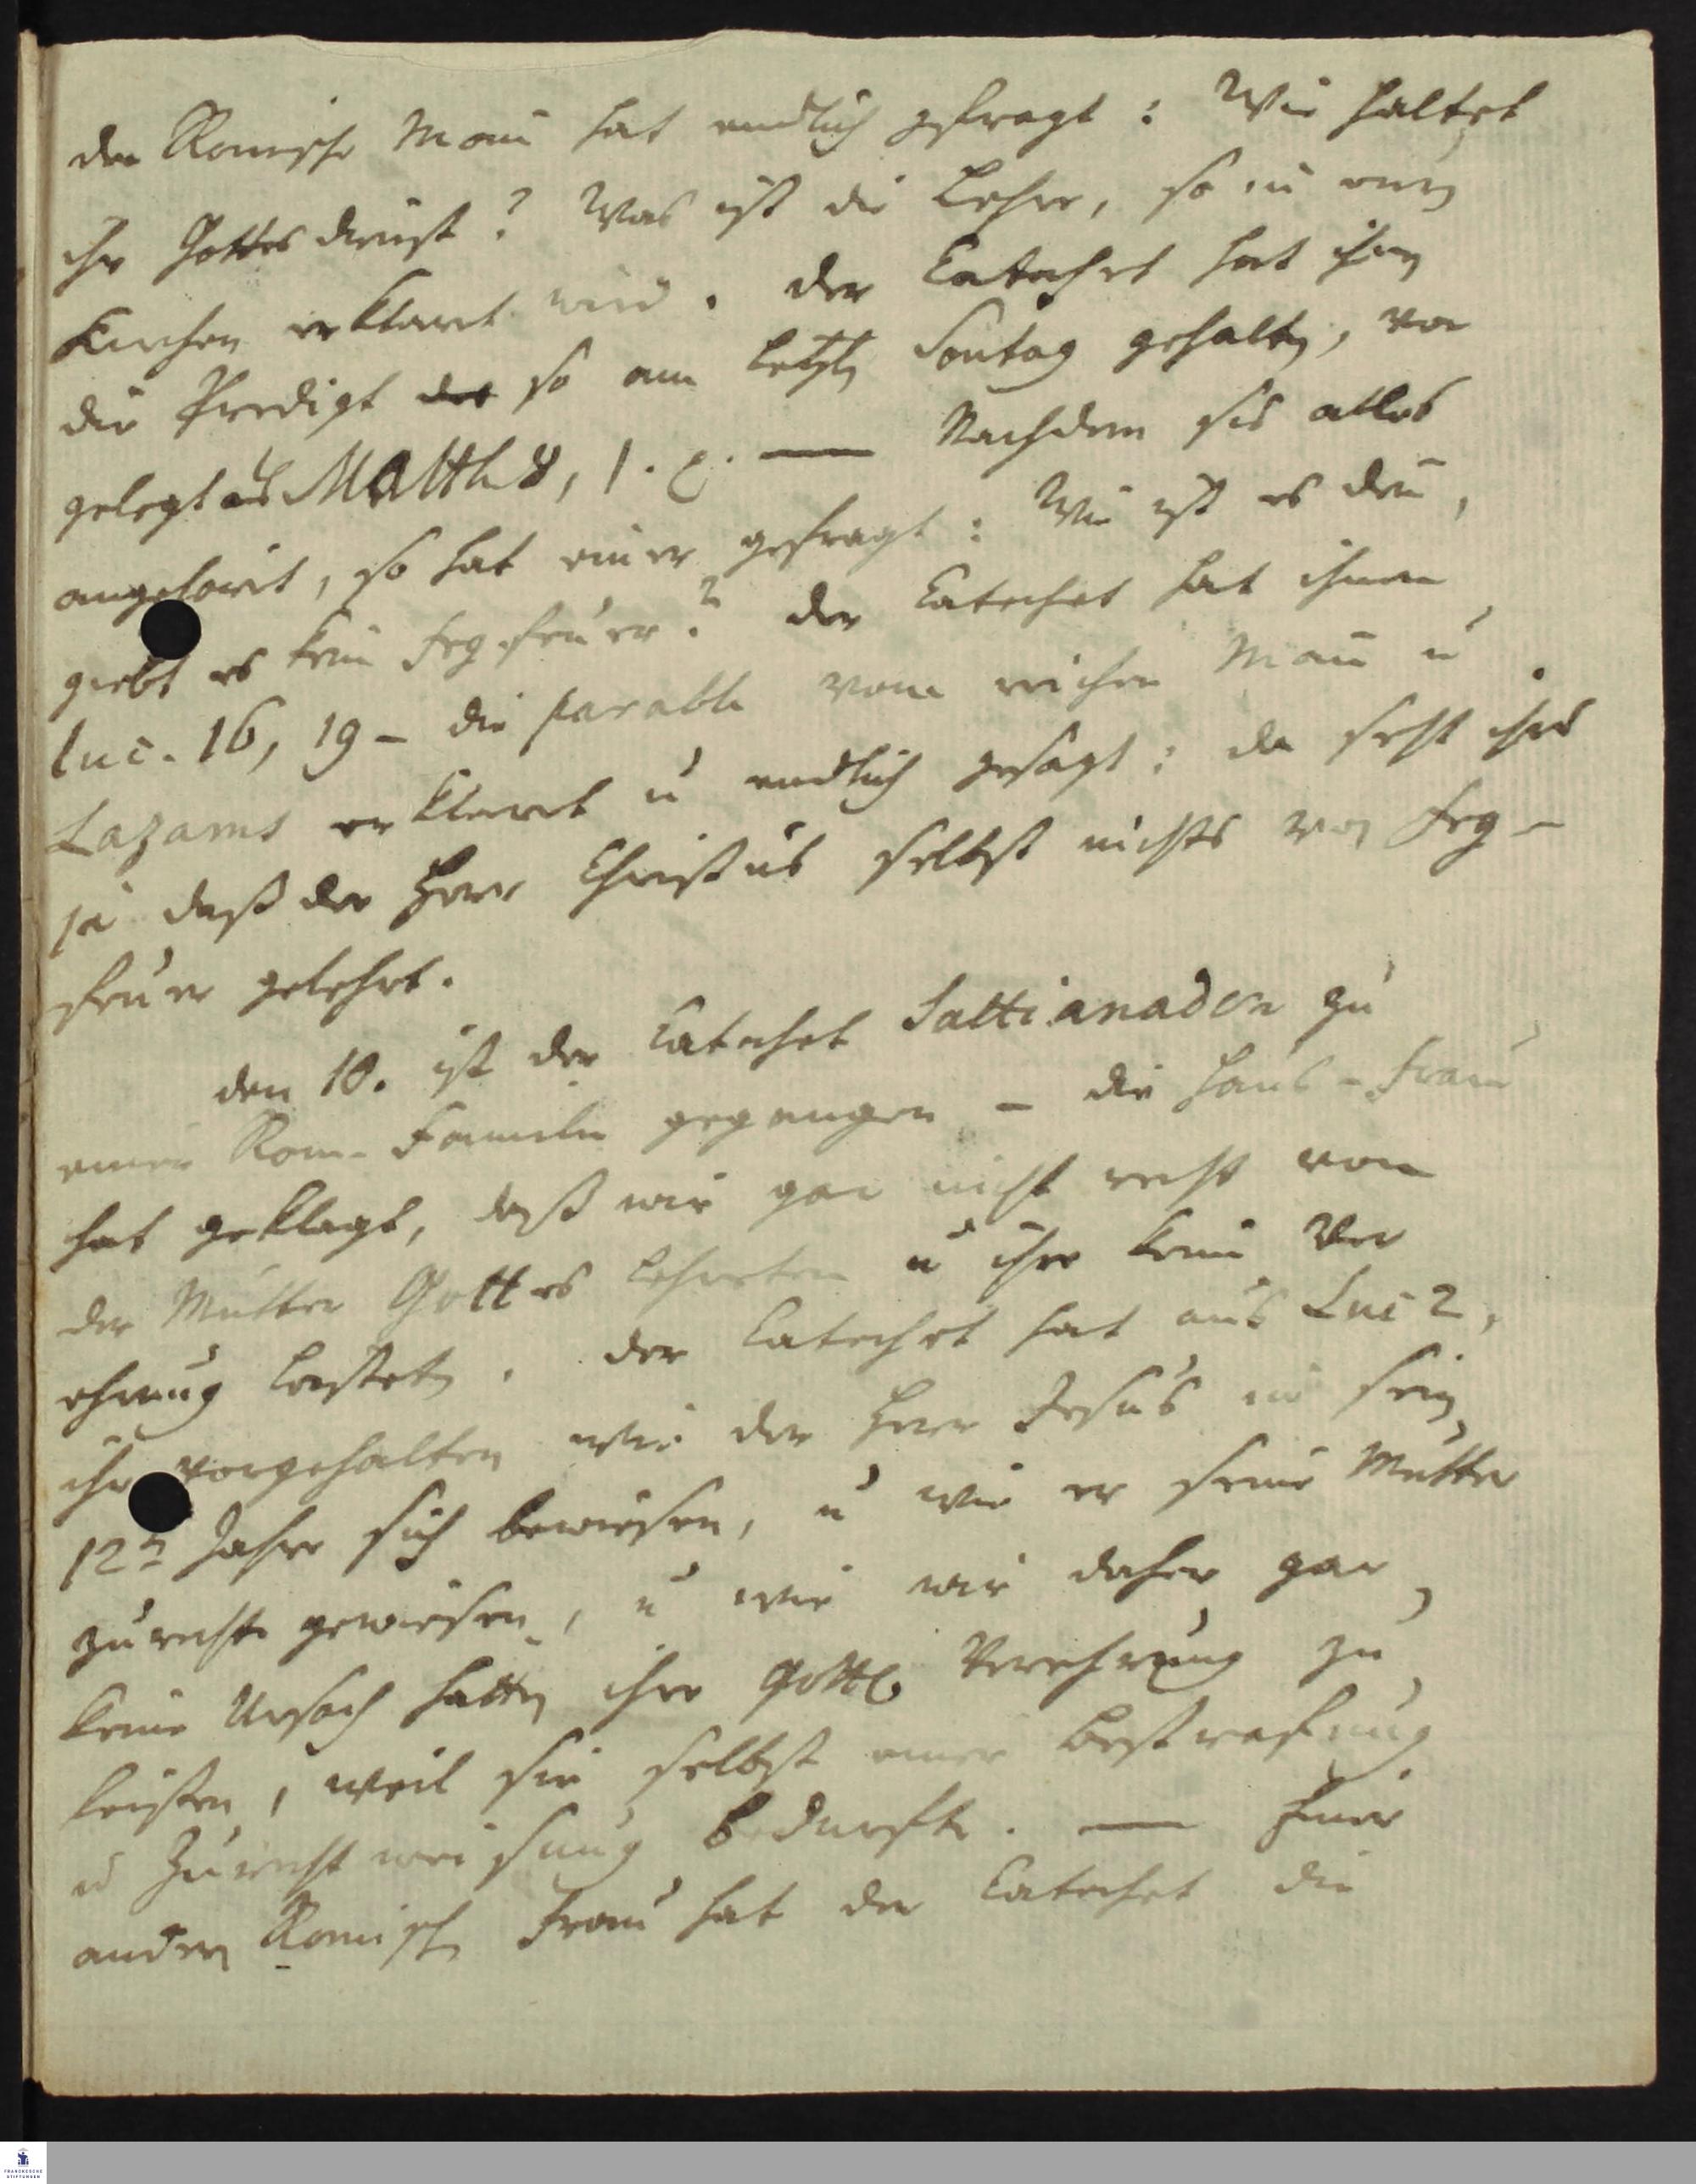 der Romische Mañ hat endlich gefragt: Wie haltet
ihr Gottesdienst? Was ist die Lehre, so in eurer
Kirchen erklaret wird. der Catechet hat ihnen
die Predigt so am letzten Sontag gehalten, vor
gelegt aus Matth 8, 1. — Nachdem sie alles
angehoret, so hat einer gefragt: Wie ist es deñ,
giebt es kein Fegefeuer? der Catechet hat ihnen
Luc. 16, 19 - die parable vom reichen Mañ u
Lazarus erklaret u endlich gesagt: da seht ihrs
ja daß der Herr Christus selbst nichts von Feg-
feuer gelehrt.
den 10. ist der Catechet Sattianaden zu
einer Rom. Familie gegangen - die Haus-Frau
hat geklagt, daß wir gar nicht recht von
der Mutter Gottes lehreten u ihr keine Ver
ehrung leisteten. der Catechet hat aus Luc 2,
ihr vorgehalten wie der Herr Jesus in sein
12n Jahre sich bewiesen, u wie er seine Mutter
zurechte gewiesen, u wie wir daher gar
keine Ursach hatten ihr Gottl. Verehrung zu
leisten, weil sie selbst einer Bestrafung
u Zurechtweisung bedurfte. — Einer
andern Romisch Frau hat der Catechet die
FRANCKESCHE
STIFTUNGEN